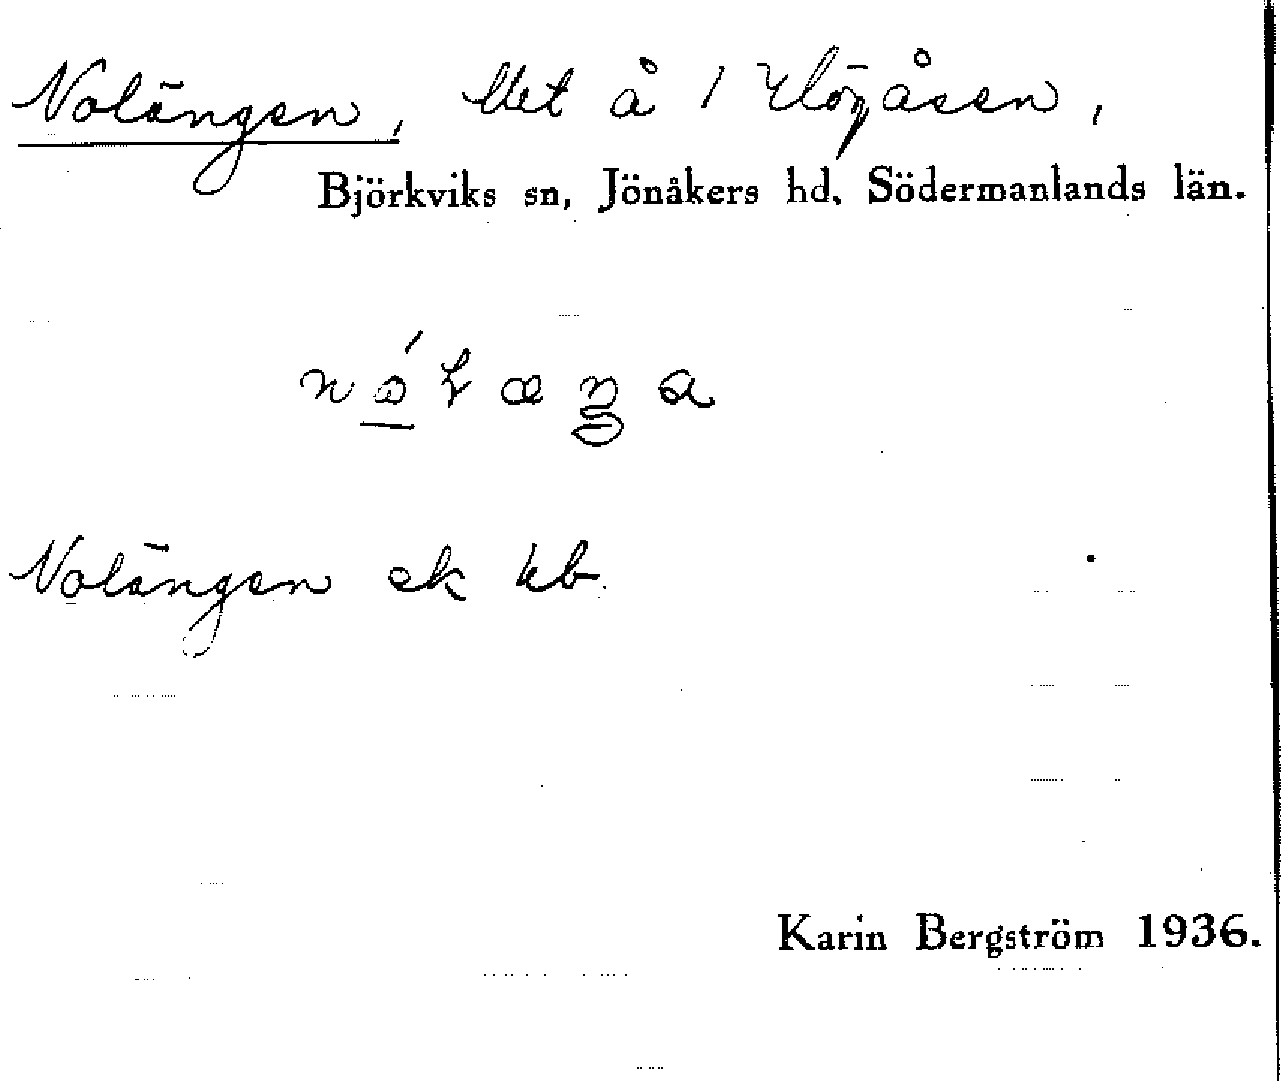 Nolängen, litet å i Högåsen,
Björkviks sn, Jönåkers hd, Södermanlands län.
Nolängen ek kb.
Karin Bergström 1936.